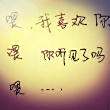 喂，我喜欢你
喂 你听见了吗
喂 ……